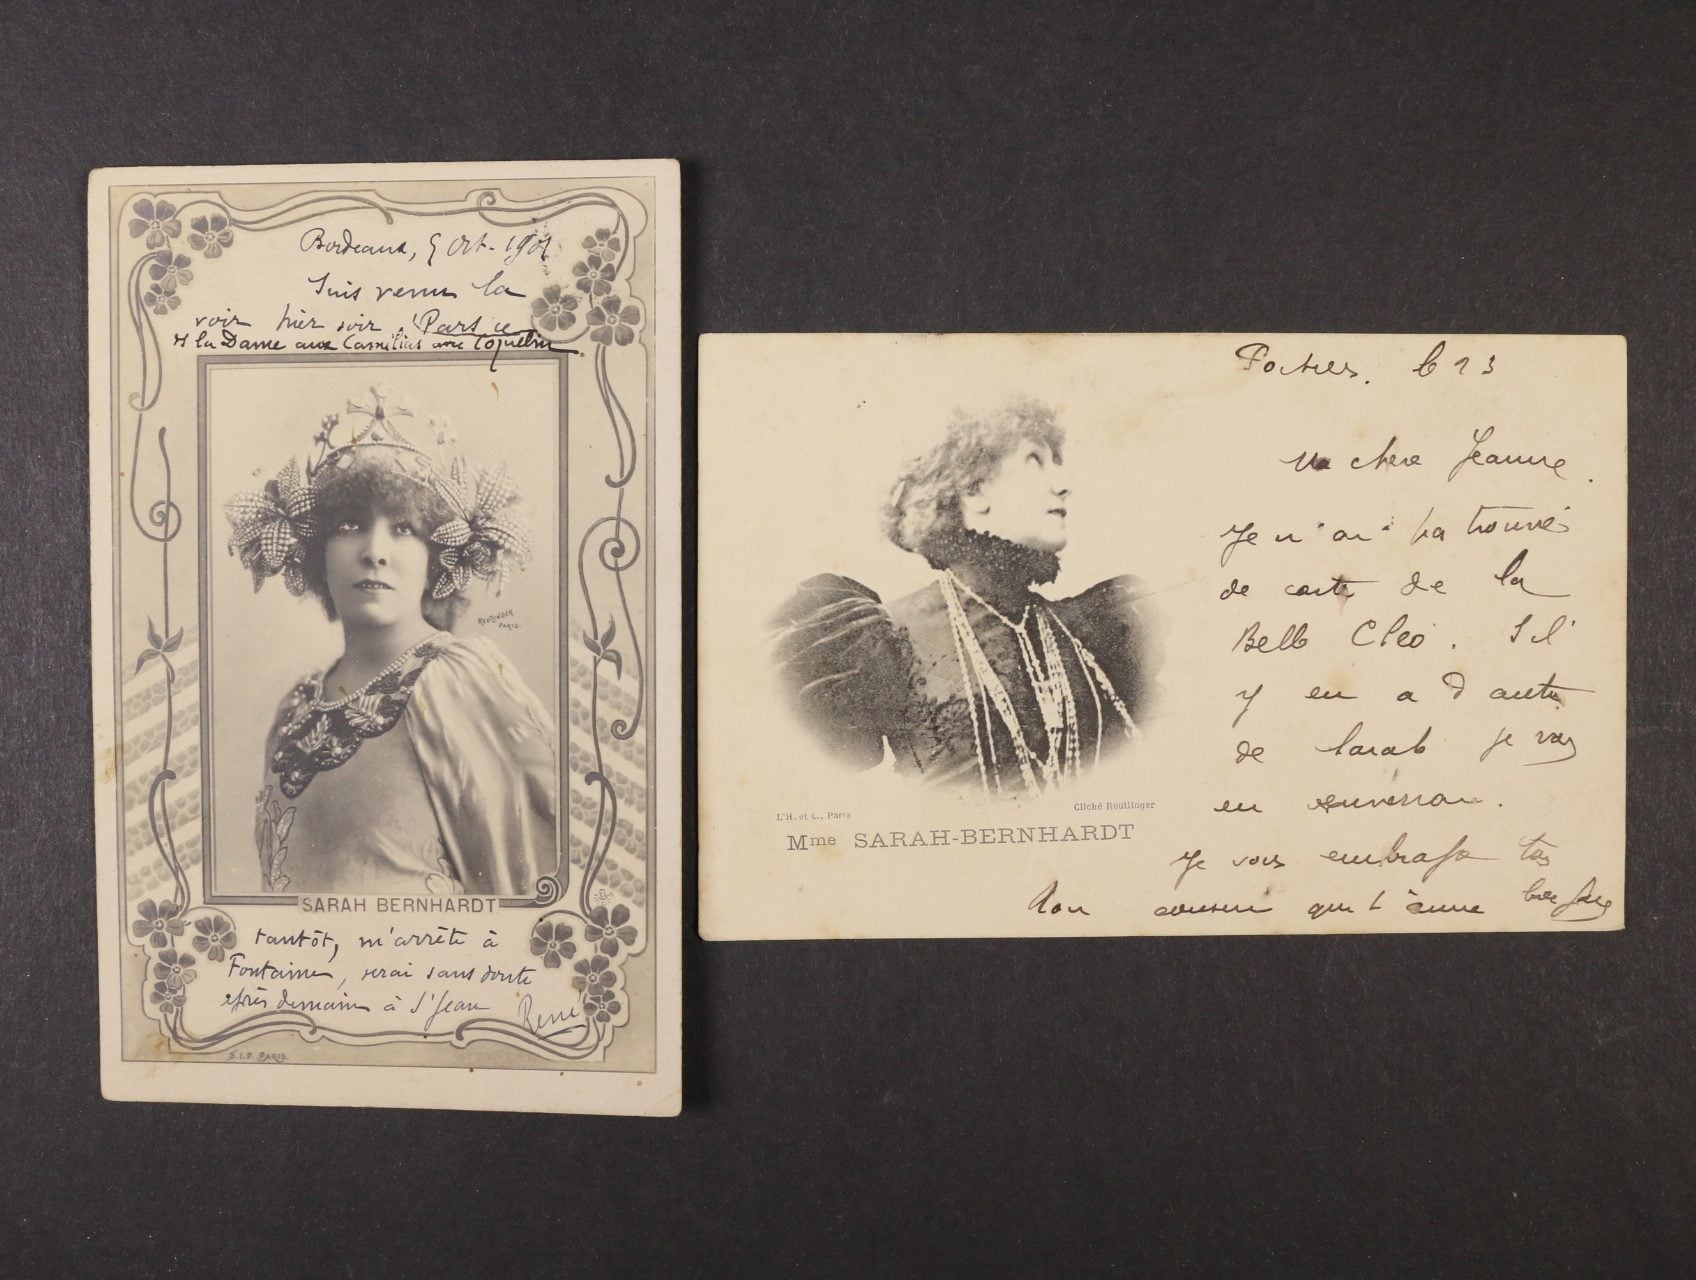 Bordeaux, 5 Oct. 1901
Suis venu la
voir hier soir.
et la Dame aux Camélias avec Coquelin
REUTLINGER
PARIS.
SARAH BERNHARDT
tantôt, m'arrête à
Fontaine, serai sans doute
après demain à St Jean
René
S.I.P. PARIS.
le 13
Ma chère Jeanne.
Je n'ai pa trouvé
de carte de la
Belle Cléo. S'il
y en a d'autre
de Sarah je vou
en enverrai.
Je vous embrasse
Mon cousin qui t'aime
L'H. et C., Paris
Cliché Reutlinger
Mme SARAH-BERNHARDT